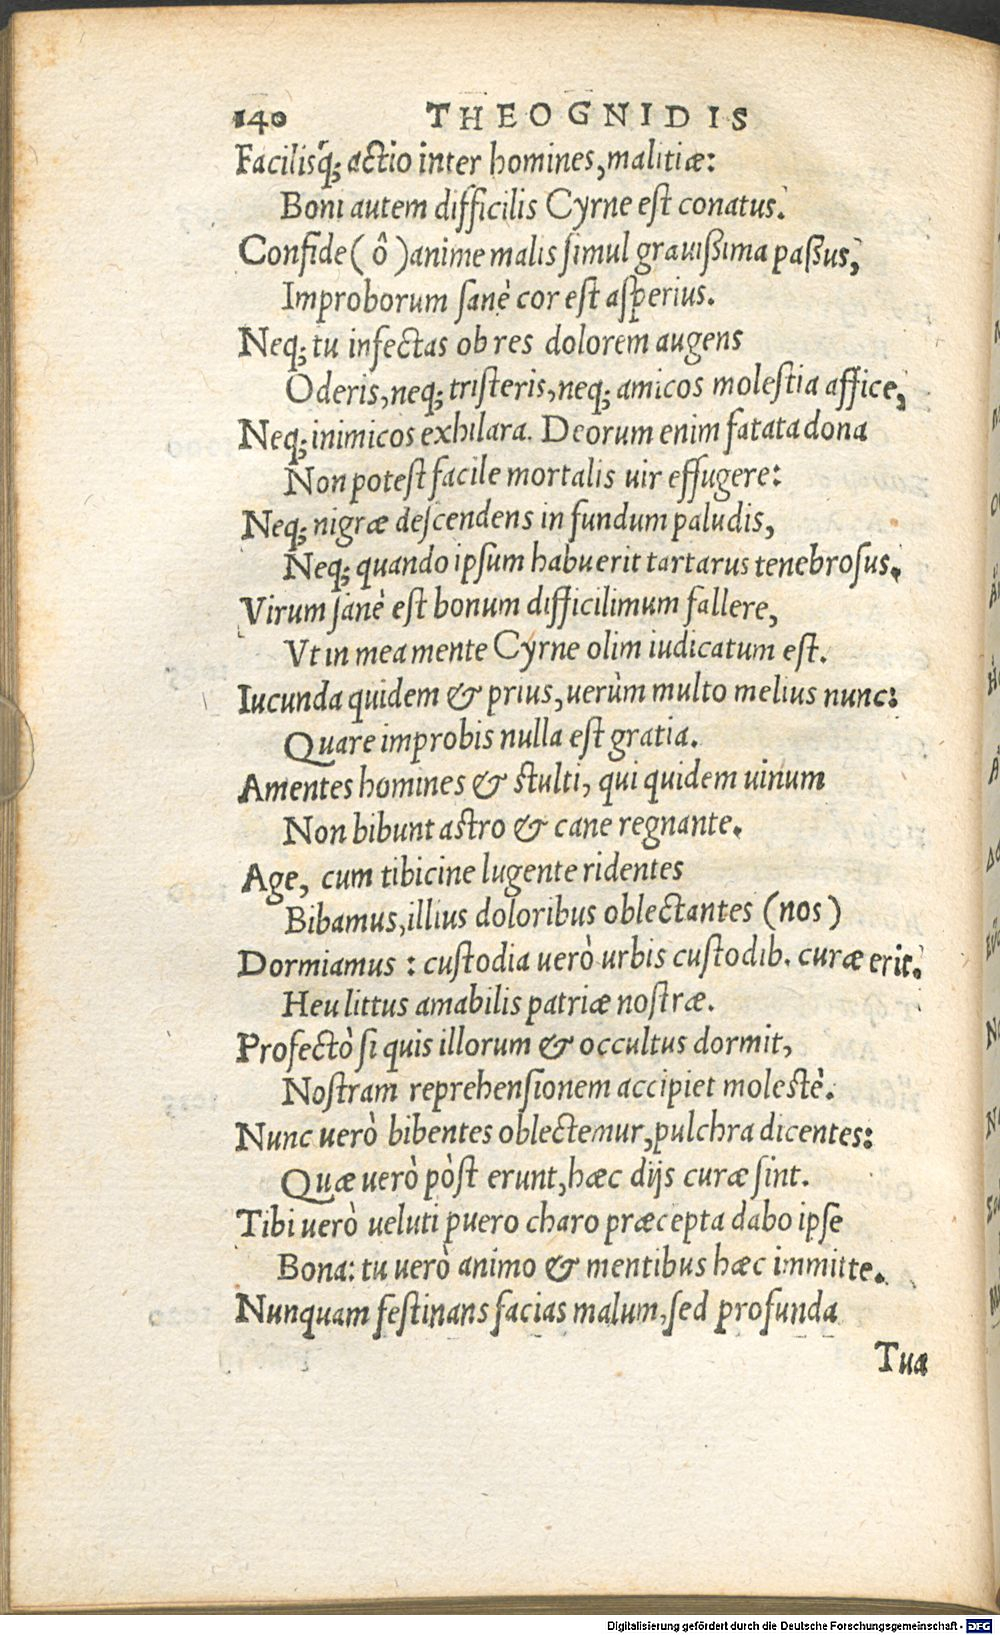 140 THEOGNIDIS
Facilisq́; actio inter homines, malitiæ:
Boni autem difficilis Cyrne est conatus.
Confide ( ô ) anime malis simul grauißima paßus,
Improborum sanè cor est asperius.
Neq; tu infectas ob res dolorem augens
Oderis, neq; tristeris, neq; amicos molestia affice,
Neq; inimicos exhilara. Deorum enim fatata dona
Non potest facile mortalis uir effugere:
Neq; nigræ descendens in fundum paludis,
Neq; quando ipsum habuerit tartarus tenebrosus.
Virum sanè est bonum difficilimum fallere,
Vt in mea mente Cyrne olim iudicatum est.
Iucunda quidem & prius, uerùm multo melius nunc:
Quare improbis nulla est gratia.
Amentes homines & stulti, qui quidem uinum
Non bibunt astro & cane regnante.
Age, cum tibicine lugente ridentes
Bibamus, illius doloribus oblectantes (nos)
Dormiamus : custodia uerò urbis custodib. curæ erit.
Heu littus amabilis patriæ nostræ.
Profectò si quis illorum & occultus dormit,
Nostram reprehensionem accipiet molestè.
Nunc uerò bibentes oblectemur, pulchra dicentes:
Quæ uerò pòst erunt, hæc dijs curæ sint.
Tibi uerò ueluti puero charo præcepta dabo ipse
Bona: tu uerò animo & mentibus hæc immitte.
Nunquam festinans facias malum, sed profunda
Tua
Digitalisierung gefördert durch die Deutsche Forschungsgemeinschaft - DFG